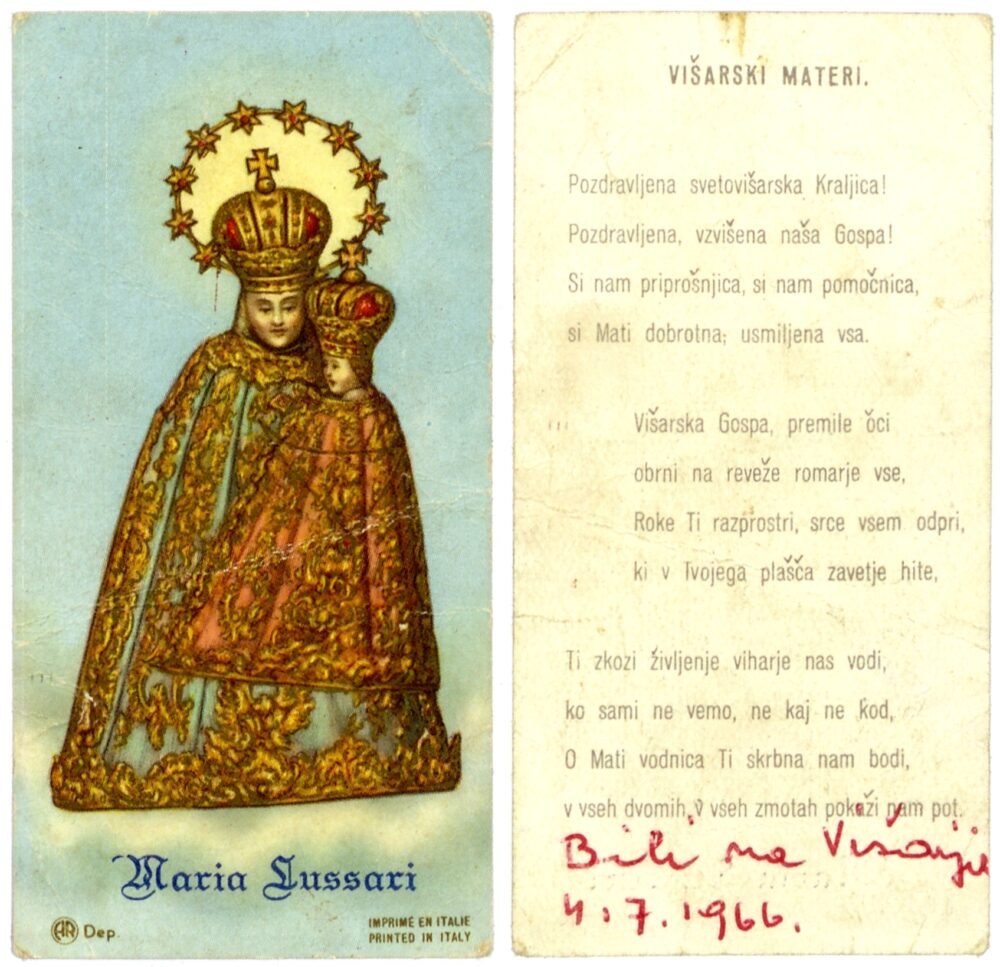 Maria Lussari
AR Dep.
IMPRIMÉ EN ITALIE
PRINTED IN ITALY
VIŠARSKI MATERI.
Pozdravljena svetovišarska Kraljica!
Pozdravljena, vzvišena naša Gospa!
Si nam priprošnjica, si nam pomočnica,
si Mati dobrotna, usmiljena vsa.
Višarska Gospa, premile ŏci
obrni na reveže romarje vse,
Roke Ti razprostri, srce vsem odpri,
ki v Tvojega plašča zavetje hite,
Ti zkozi življenje viharje nas vodi,
ko sami ne vemo, ne kaj ne kod,
O Mati vodnica Ti skrbna nam bodi,
v vseh dvomih, v vseh zmotah pokaži nam pot.
Bili na Višarje
4.7.1966.